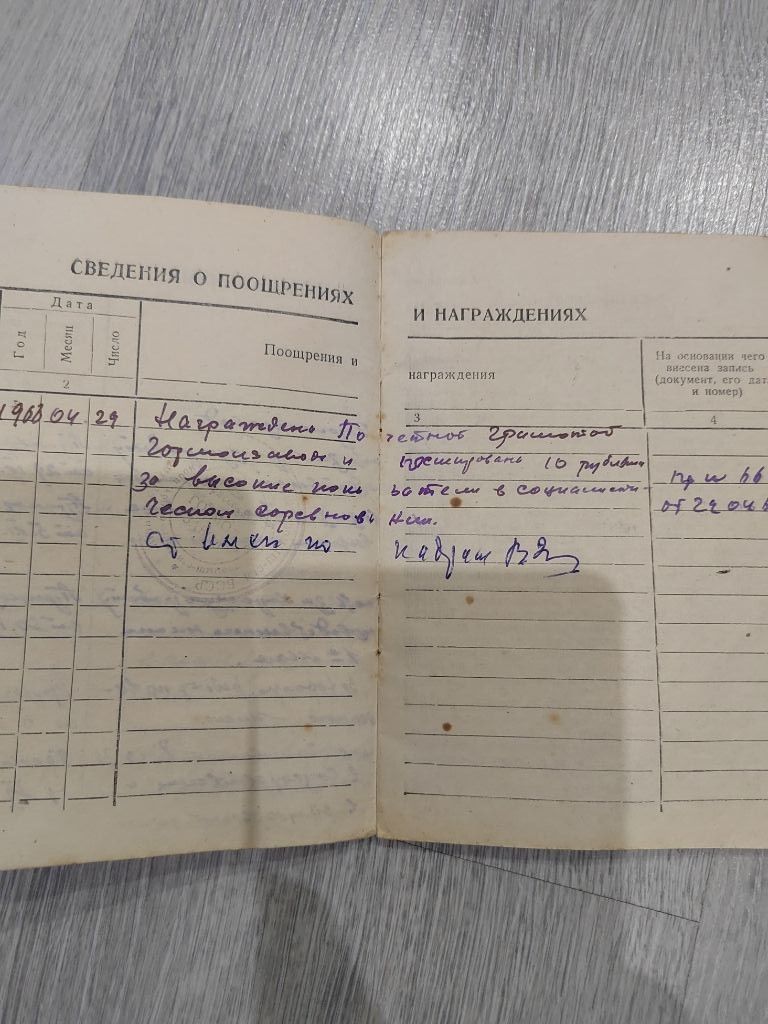 СВЕДЕНИЯ О ПООЩРЕНИЯХ И НАГРАЖДЕНИЯХ
Дата
Год Месяц Число
Поощрения и награждения
На основании чего внесена запись (документ, его дата и номер)
2 3 4
04 29 Награждена Почетной грамотой
и премирована 10 рублями
за высокие показатели в социалисти-
ческом соревновании.
Ст инсп по кадрам
Пр № 66
от 29 04